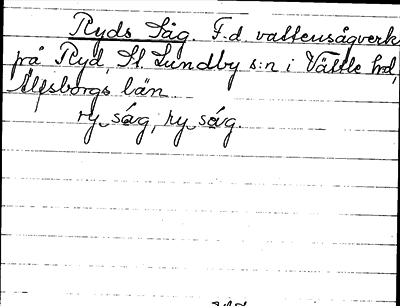 Ryds Såg. F.d. vattensågverk
på Ryd, St. Lundby s:n i Vättle hrd,
Älfsborgs län
ry såg, ry såg.